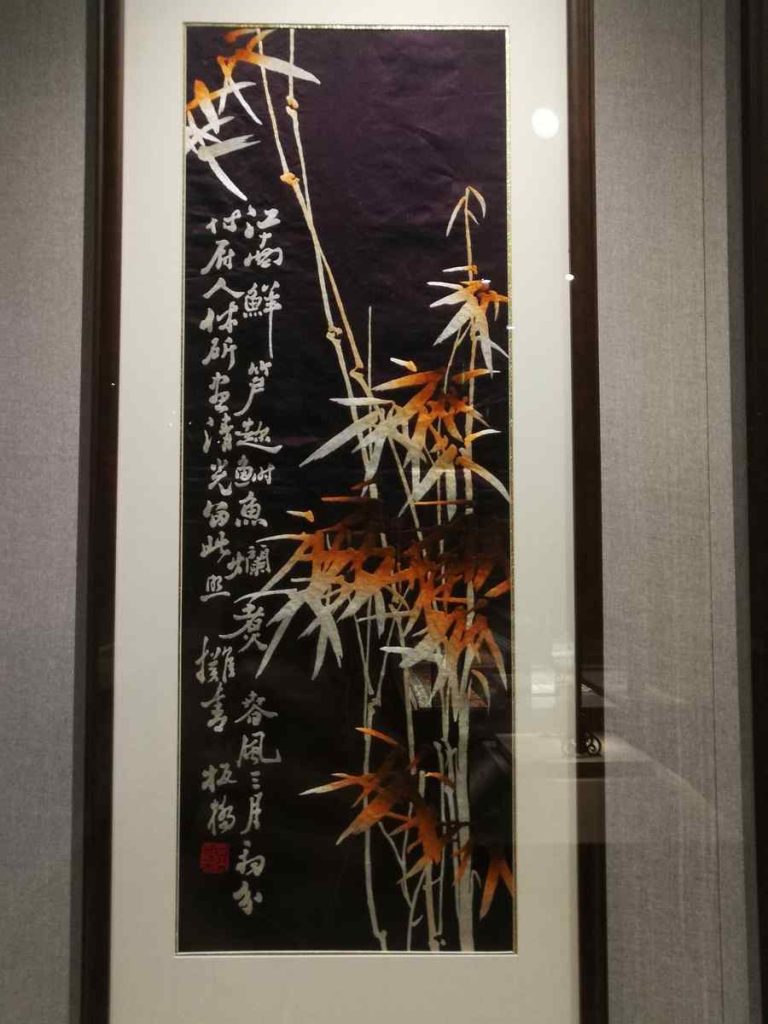 江南鮮笋趂鰣魚爛煮春風三月初分
付厨人休斫盡清光留此照攤書 板橋